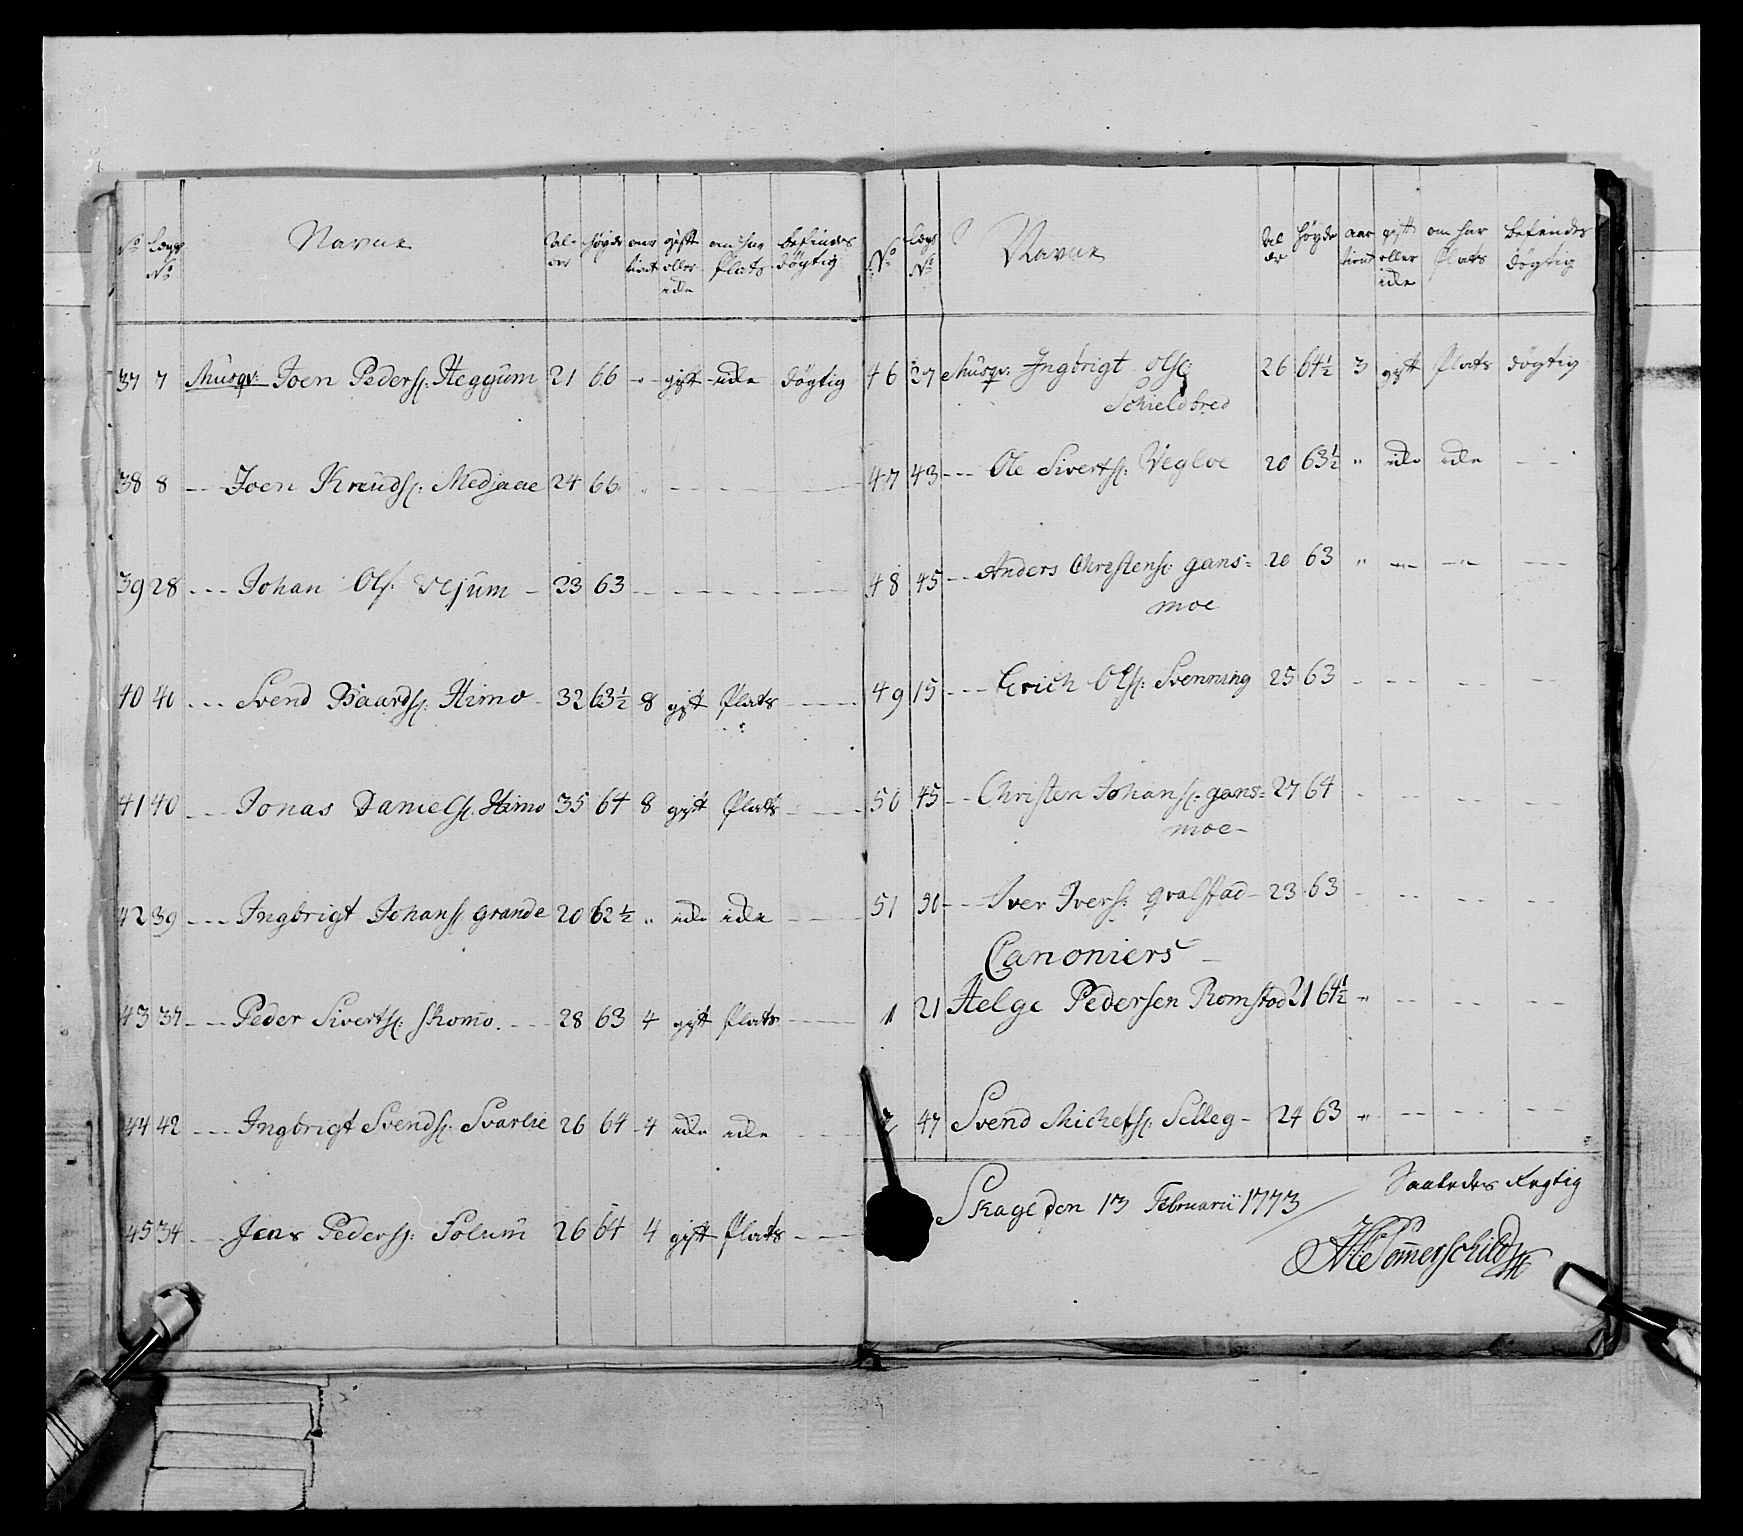 No Lægs No Navne Alder Høyde aar tient gift eller icke om har Plats befindes døgtig
37 7 Musqv: Joen Peders: Heggum 21 66 " gift icke døgtig
38 8 --- Joen Knuds: Medjaae 24 66 " - - -
39 28 --- Johan Ols: Vejum - 33 63 - - - -
40 40 --- Svend Baards: Himo - 32 63½ 8 gift Plats ---
41 40 --- Jonas Daniels: Himo 35 64 8 gift Plats ---
42 39 --- Ingbrigt Johans: Grande 20 62½ " icke icke ---
43 37 --- Peder Siverts: Skomo. --- 28 63 4 gift Plats ---
44 42 --- Ingbrigt Svends: Svarlie 26 64 4 icke icke ---
45 34 --- Jens Peders: Solum 26 64 4 gift Plats ---
No Lægs No Navne Alder Høyde aar tient gift eller icke om har Plats befindes døgtig
46 27 Musqv: Ingbrigt Ols: 26 64½ 3 gift Plats døgtig
Schieldbred
47 43 --- Ole Siverts: Vegloe 20 63½ " icke icke ---
48 45 -- Anders Christens: gans= 20 63 " -"- -"- ---
moe
49 15 --- Erich Ols: Svenning 25 63 - -- -- --
50 45 -- Christen Johans: gans= 27 64 - -- -- --
moe -
51 30 -- Iver Ivers: Qvalstad - 23 63 - -- -- --
Canoniers -
1 21 Helge Pedersen Romstad 21 64½ " -- -- --
2 47 Svend Michels: Selleg - 24 63 " -- -- --
Skage den 13 Februarii 1773 / Saaledes Rigtig
Sommerschild